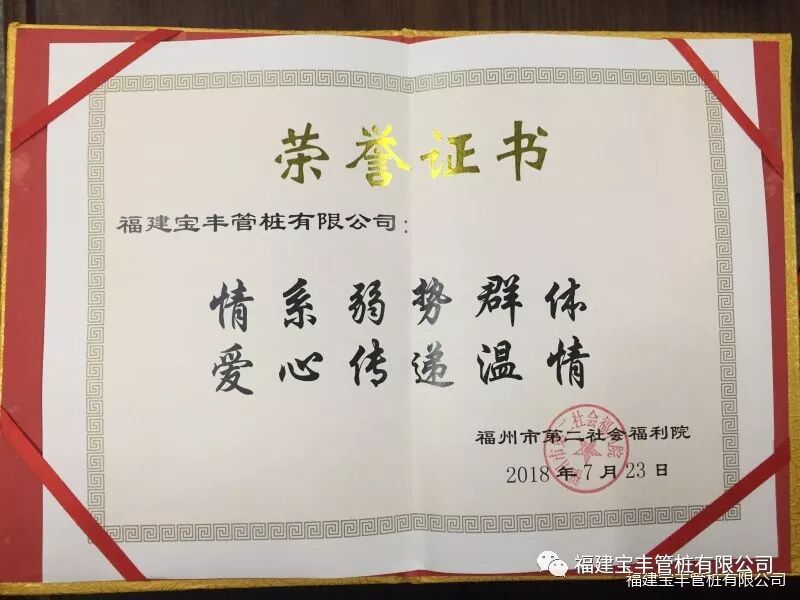 荣誉证书
福建宝丰管桩有限公司：
情系弱势群体
爱心传递温情
福州市第二社会福利院
2018年7月23日
福州市第二社会福利院
福建宝丰管桩有限公司
福建宝丰管桩有限公司